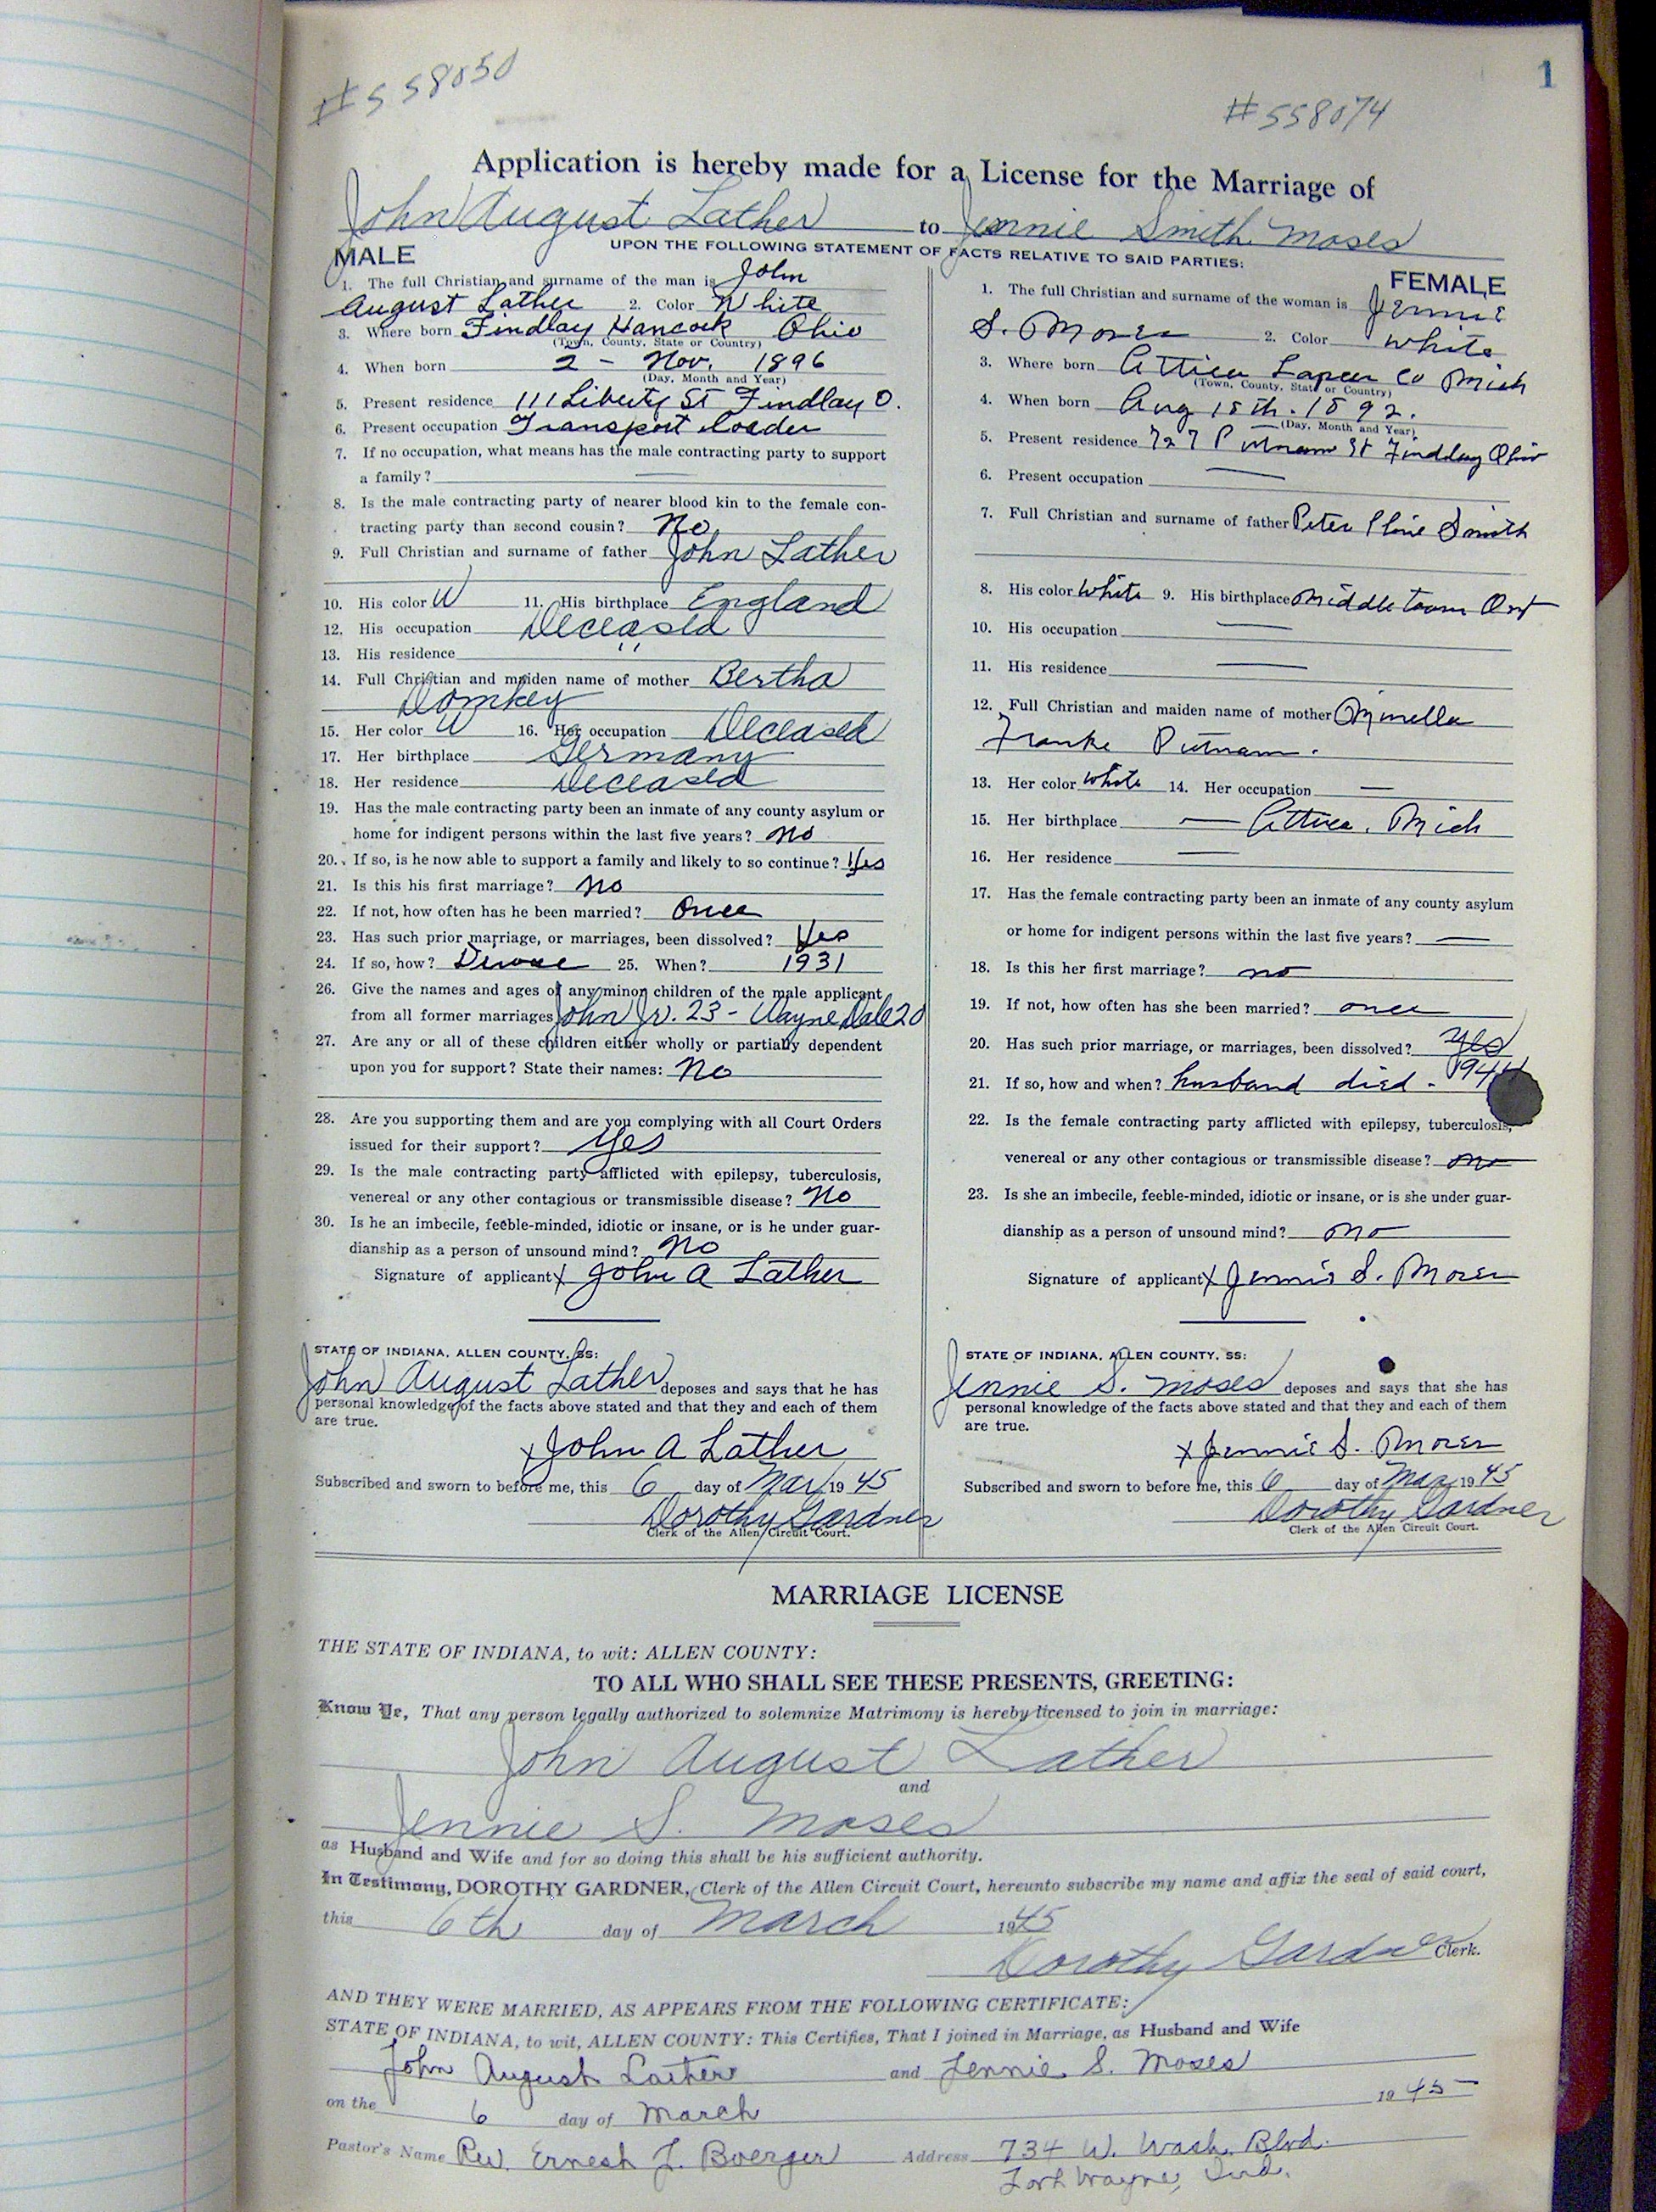 1
#558050
#558074
Application is hereby made for a License for the Marriage of
John August Lather to Jennie Smith Moses
UPON THE FOLLOWING STATEMENT OF FACTS RELATIVE TO SAID PARTIES:
MALE
1. The full Christian and surname of the man is John
August Lather 2. Color White
3. Where born Findlay Hancock Ohio
(Town, County, State or Country)
4. When born 2 - Nov. 1896
(Day, Month and Year)
5. Present residence 111 Liberty St Findlay O.
6. Present occupation Transport loader
7. If no occupation, what means has the male contracting party to support
a family?
8. Is the male contracting party of nearer blood kin to the female con-
tracting party than second cousin? No
9. Full Christian and surname of father John Lather
10. His color W 11. His birthplace England
12. His occupation Deceased
13. His residence "
14. Full Christian and maiden name of mother Bertha
Domkey
15. Her color W 16. Her occupation Deceased
17. Her birthplace Germany
18. Her residence Deceased
19. Has the male contracting party been an inmate of any county asylum or
home for indigent persons within the last five years? No
20. If so, is he now able to support a family and likely to so continue? Yes
21. Is this his first marriage? No
22. If not, how often has he been married? Once
23. Has such prior marriage, or marriages, been dissolved? Yes
24. If so, how? 25. When? 1931
26. Give the names and ages of any minor children of the male applicant
from all former marriages John Jr. 23 - Wayne Dale 20
27. Are any or all of these children either wholly or partially dependent
upon you for support? State their names: No
28. Are you supporting them and are you complying with all Court Orders
issued for their support? Yes
29. Is the male contracting party afflicted with epilepsy, tuberculosis,
venereal or any other contagious or transmissible disease? No
30. Is he an imbecile, feeble-minded, idiotic or insane, or is he under guar-
dianship as a person of unsound mind? No
Signature of applicant x John A Lather
STATE OF INDIANA, ALLEN COUNTY, SS:
John August Lather deposes and says that he has
personal knowledge of the facts above stated and that they and each of them
are true.
x John A Lather
Subscribed and sworn to before me, this 6 day of Mar 1945
Dorothy Gardner
Clerk of the Allen Circuit Court.
FEMALE
1. The full Christian and surname of the woman is Jennie
S. Moses 2. Color White
3. Where born Attica Lapeer Co Mich
(Town, County, State or Country)
4. When born Aug 18th. 1892.
(Day, Month and Year)
5. Present residence 727 Putnam St Findlay Ohio
6. Present occupation
7. Full Christian and surname of father Peter Smith
8. His color White 9. His birthplace Middletown Ont
10. His occupation
11. His residence
12. Full Christian and maiden name of mother
Putnam.
13. Her color White 14. Her occupation
15. Her birthplace Attica, Mich
16. Her residence
17. Has the female contracting party been an inmate of any county asylum
or home for indigent persons within the last five years?
18. Is this her first marriage? no
19. If not, how often has she been married? once
20. Has such prior marriage, or marriages, been dissolved? Yes
21. If so, how and when? husband died - 1944
22. Is the female contracting party afflicted with epilepsy, tuberculosis,
venereal or any other contagious or transmissible disease? no
23. Is she an imbecile, feeble-minded, idiotic or insane, or is she under guar-
dianship as a person of unsound mind? no
Signature of applicant x Jennie S. Moses
STATE OF INDIANA, ALLEN COUNTY, SS:
Jennie S. Moses deposes and says that she has
personal knowledge of the facts above stated and that they and each of them
are true.
x Jennie S. Moses
Subscribed and sworn to before me, this 6 day of Mar 1945
Dorothy Gardner
Clerk of the Allen Circuit Court.
MARRIAGE LICENSE
THE STATE OF INDIANA, to wit: ALLEN COUNTY:
TO ALL WHO SHALL SEE THESE PRESENTS, GREETING:
Know Ye, That any person legally authorized to solemnize Matrimony is hereby licensed to join in marriage:
John August Lather
and
Jennie S. Moses
as Husband and Wife and for so doing this shall be his sufficient authority.
In Testimony, DOROTHY GARDNER, Clerk of the Allen Circuit Court, hereunto subscribe my name and affix the seal of said court,
this 6th day of March 1945
Dorothy Gardner Clerk.
AND THEY WERE MARRIED, AS APPEARS FROM THE FOLLOWING CERTIFICATE:
STATE OF INDIANA, to wit, ALLEN COUNTY: This Certifies, That I joined in Marriage, as Husband and Wife
John August Lather and Jennie S. Moses
on the 6 day of March 1945
Pastor's Name Rev. Ernest J. Boerger Address 734 W. Wash. Blvd.
Fort Wayne, Ind.